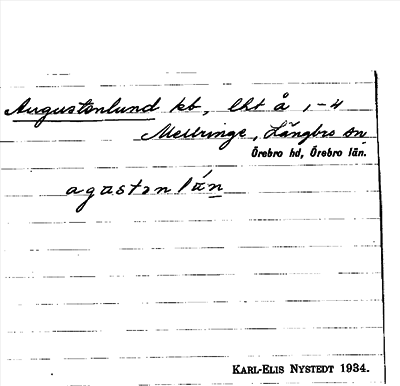 Augustenlund kb, lht å 1-4
Mellringe, Längbro sn
Örebro hd, Örebro län.
agastənlán
KARL-ELIS NYSTEDT 1934.